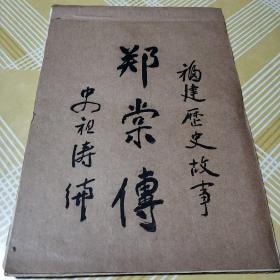 福建歷史故事
郑棠傳
史祖涛编